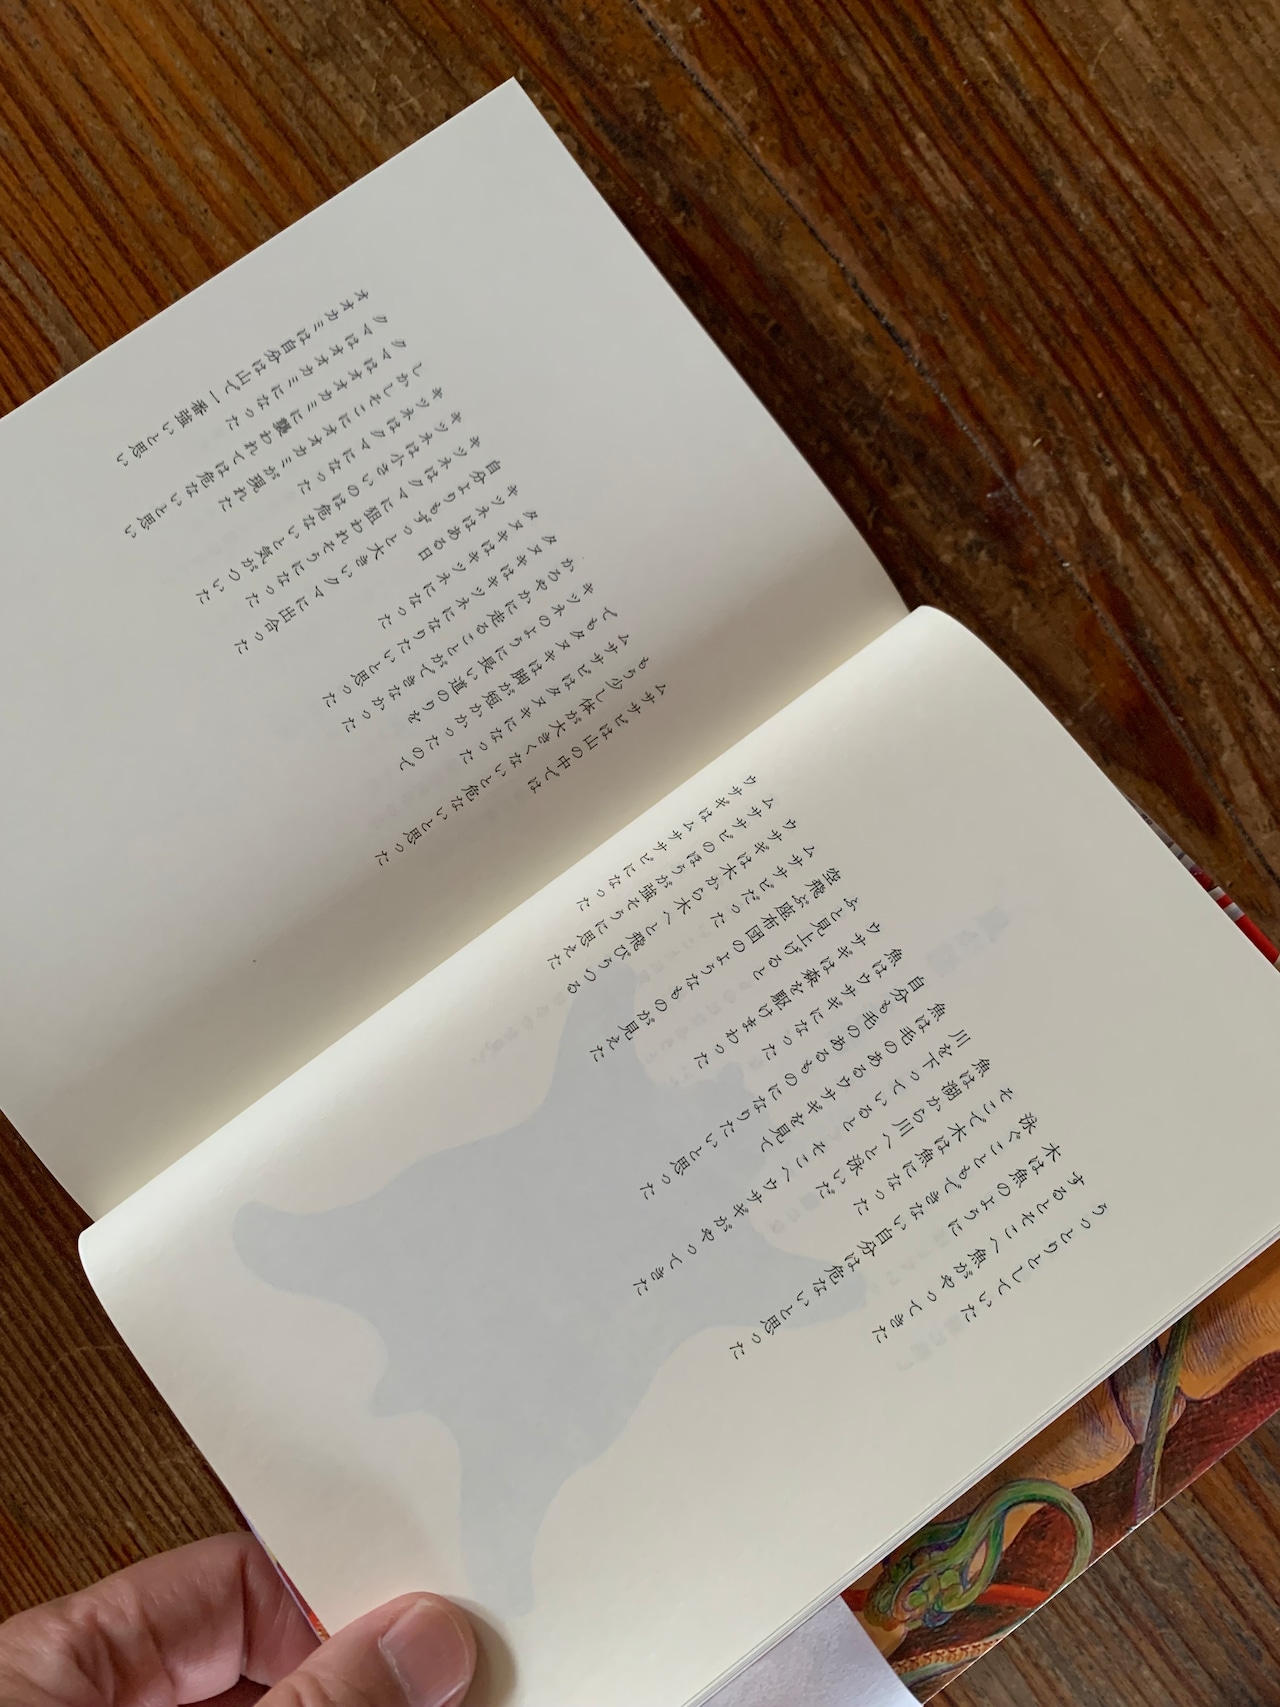 うっとりとしていた
するとそこへ魚がやってきた
木は魚のように
泳ぐこともできない自分は危ないと思った
そこで木は魚になった
魚は湖から川へと泳いだ
川を下っているとそこへウサギがやってきた
魚は毛のあるウサギを見て
自分も毛のあるものになりたいと思った
魚はウサギになった
ウサギは森を駆けまわった
ふと見上げると
空飛ぶ座布団のようなものが見えた
ムササビだった
ウサギは木から木へと飛びうつる
ムササビのほうが強そうに思えた
ウサギはムササビになった
ムササビは山の中では
もう少し体が大きくないと危ないと思った
ムササビはタヌキになった
でもタヌキは脚が短かったので
キツネのように長い道のりを
かろやかに走ることができなかった
タヌキはキツネになりたいと思った
タヌキはキツネになった
キツネはある日
自分よりもずっと大きいクマに出合った
キツネはクマに狙われそうになった
キツネは小さいのは危ないと気がついた
キツネはクマになった
しかしそこにオオカミが現れた
クマはオオカミに襲われては危ないと思い
クマはオオカミになった
オオカミは自分は山で一番強いと思い